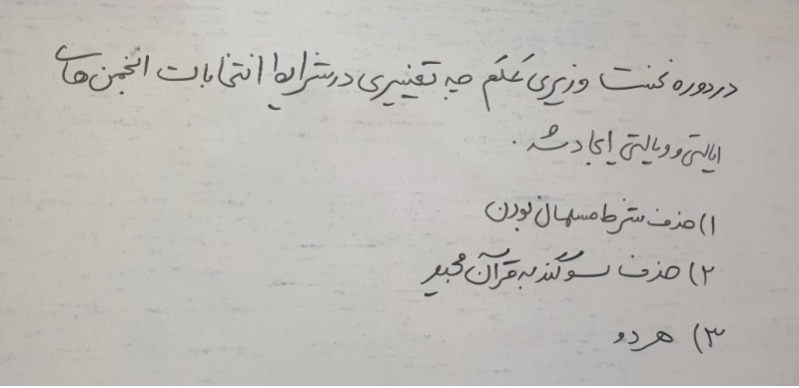 در دوره نخست وزیری عَلَم چه تغییری در شرایط انتخابات انجمن های
ایالتی و ولایتی ایجاد شد.
۱) حذف شرط مسلمان بودن
۲) حذف سوگند به قرآن مجید
۳) هر دو